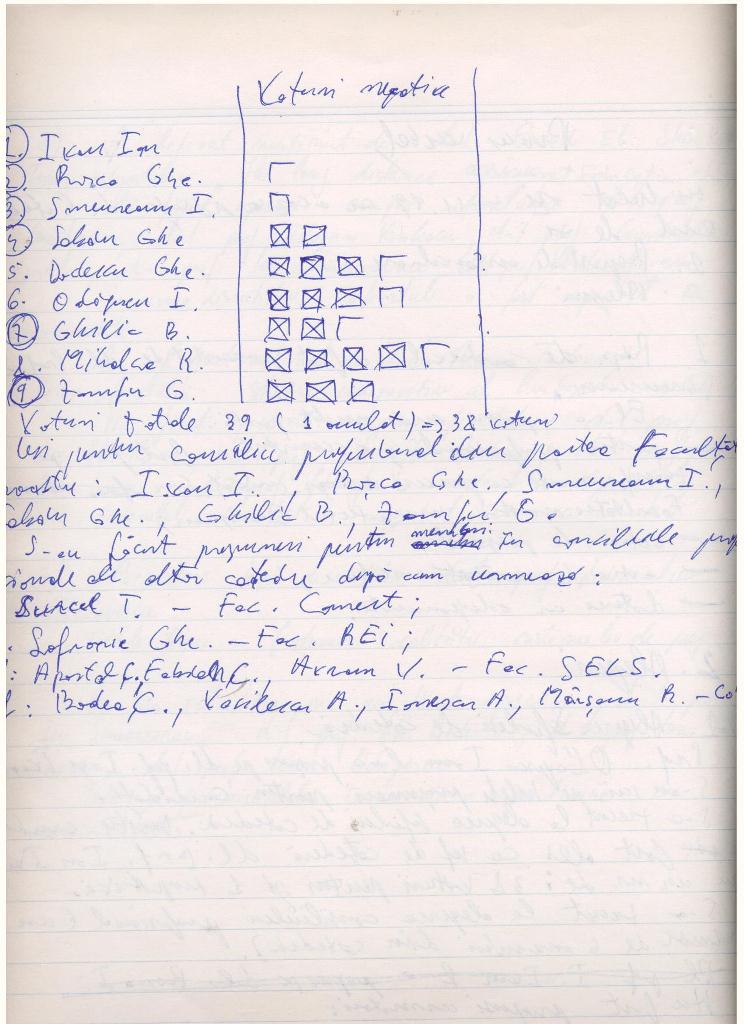 Voturi negative
1. Ivan Ion
2. Roșca Ghe.
3. Smeureanu I.
4. Sabău Ghe
5. Dodescu Ghe.
6. Odăgescu I.
7. Ghilic B.
8. Mihalca R.
9. Zamfir G.
Voturi totale 39 (1 anulat) => 38 voturi
leși pentru consiliu profesoral din partea Facultăț
noastre: Ivan I., Roșca Ghe., Smeureanu I.,
abău Ghe., Ghilic B., Zamfir G.
S-au făcut propuneri pentru membri în consiliile pro
sionale ale altor catedre după cum urmează:
Surcel T. - Fac. Comerț;
Sofronie Ghe. - Fac. REI;
: Apostol C., Fabian C., Avram V. - Fac. SELS.
: Bodea C., Vasilescu A., Ionescu A., Mârșanu R. - Co